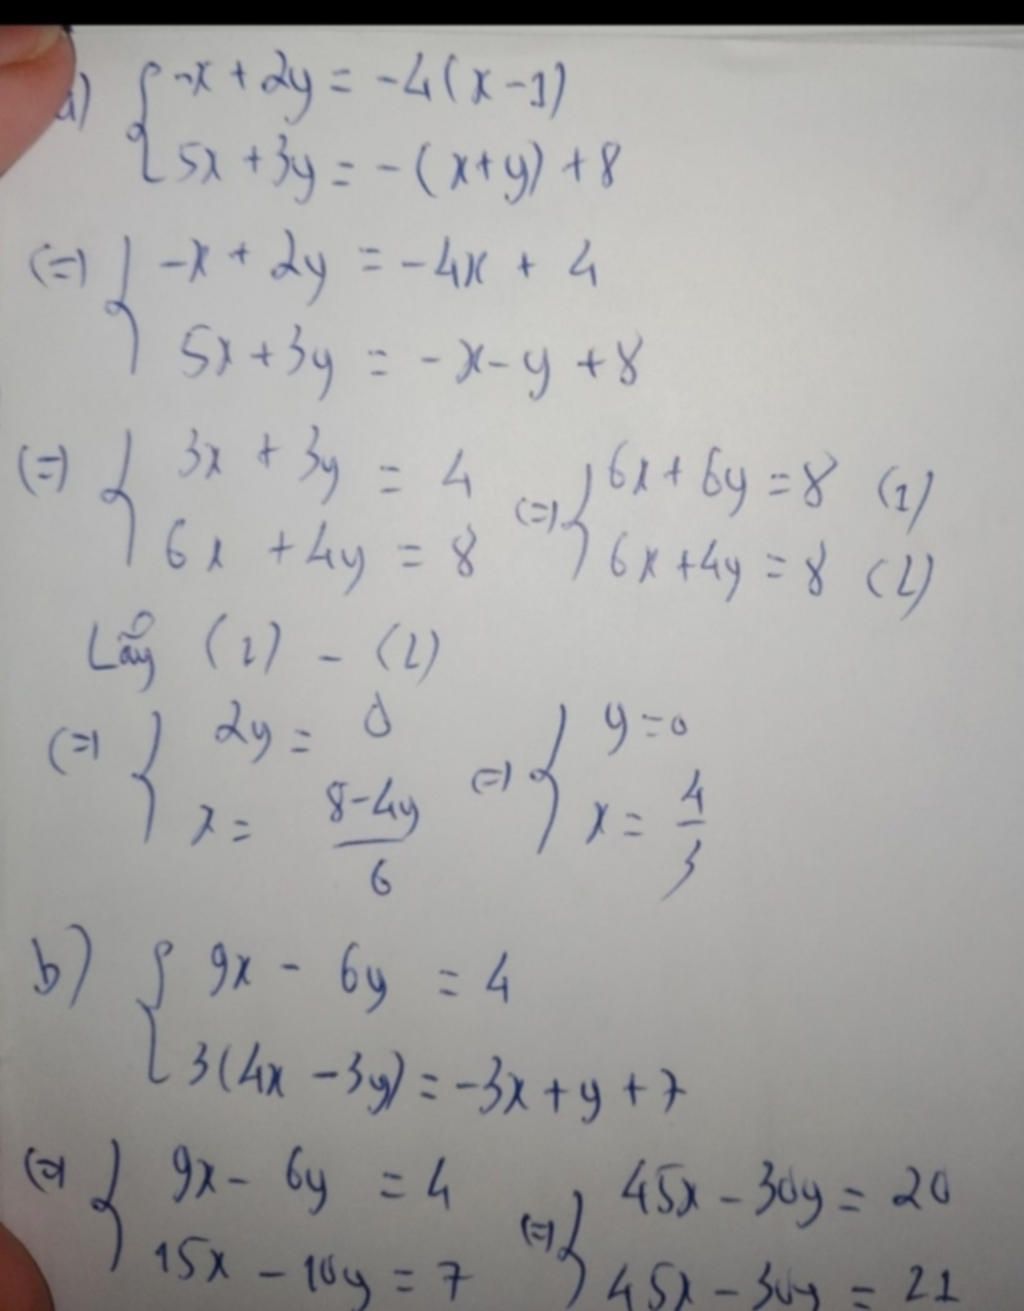 a) { -x + 2y = -4(x-1)
5x + 3y = -(x+y) + 8
(=) { -x + 2y = -4x + 4
5x + 3y = -x - y + 8
(=) { 3x + 3y = 4 (=) { 6x + 6y = 8 (1)
6x + 4y = 8 6x + 4y = 8 (2)
Lấy (1) - (2)
(=) { 2y = 0 (=) { y = 0
x = 8-4y/6 x = 4/3
b) { 9x - 6y = 4
3(4x - 3y) = -3x + y + 7
(=) { 9x - 6y = 4 (=) { 45x - 30y = 20
15x - 10y = 7 45x - 30y = 21